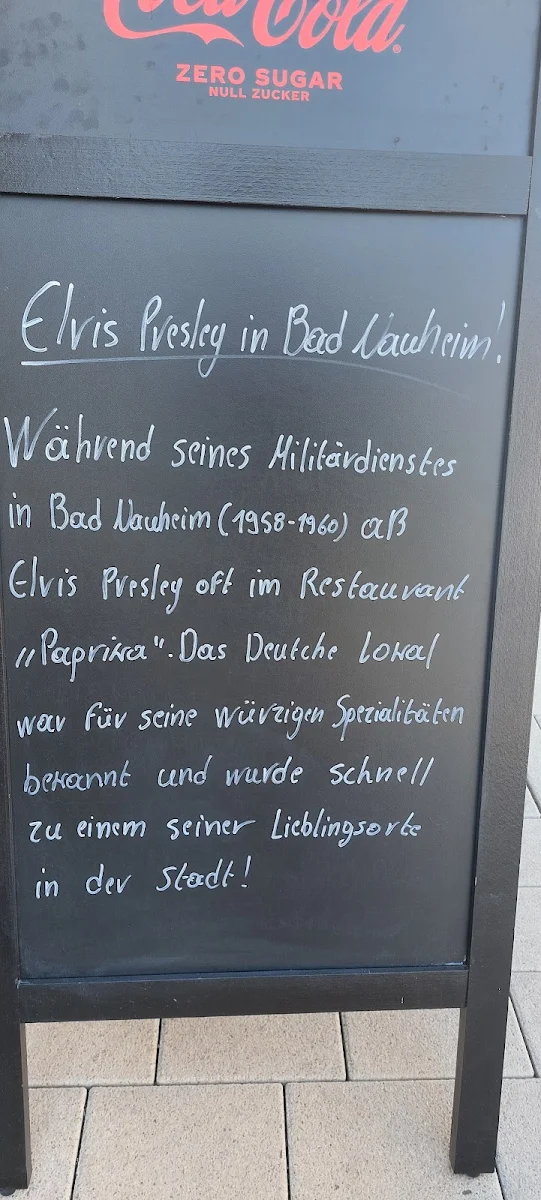 Coca-Cola®
ZERO SUGAR
NULL ZUCKER
Elvis Presley in Bad Nauheim!
Während seines Militärdienstes
in Bad Nauheim (1958-1960) aß
Elvis Presley oft im Restaurant
„Paprika". Das Deutche Lokal
war für seine würzigen Spezialitäten
bekannt und wurde schnell
zu einem seiner Lieblingsorte
in der Stadt!